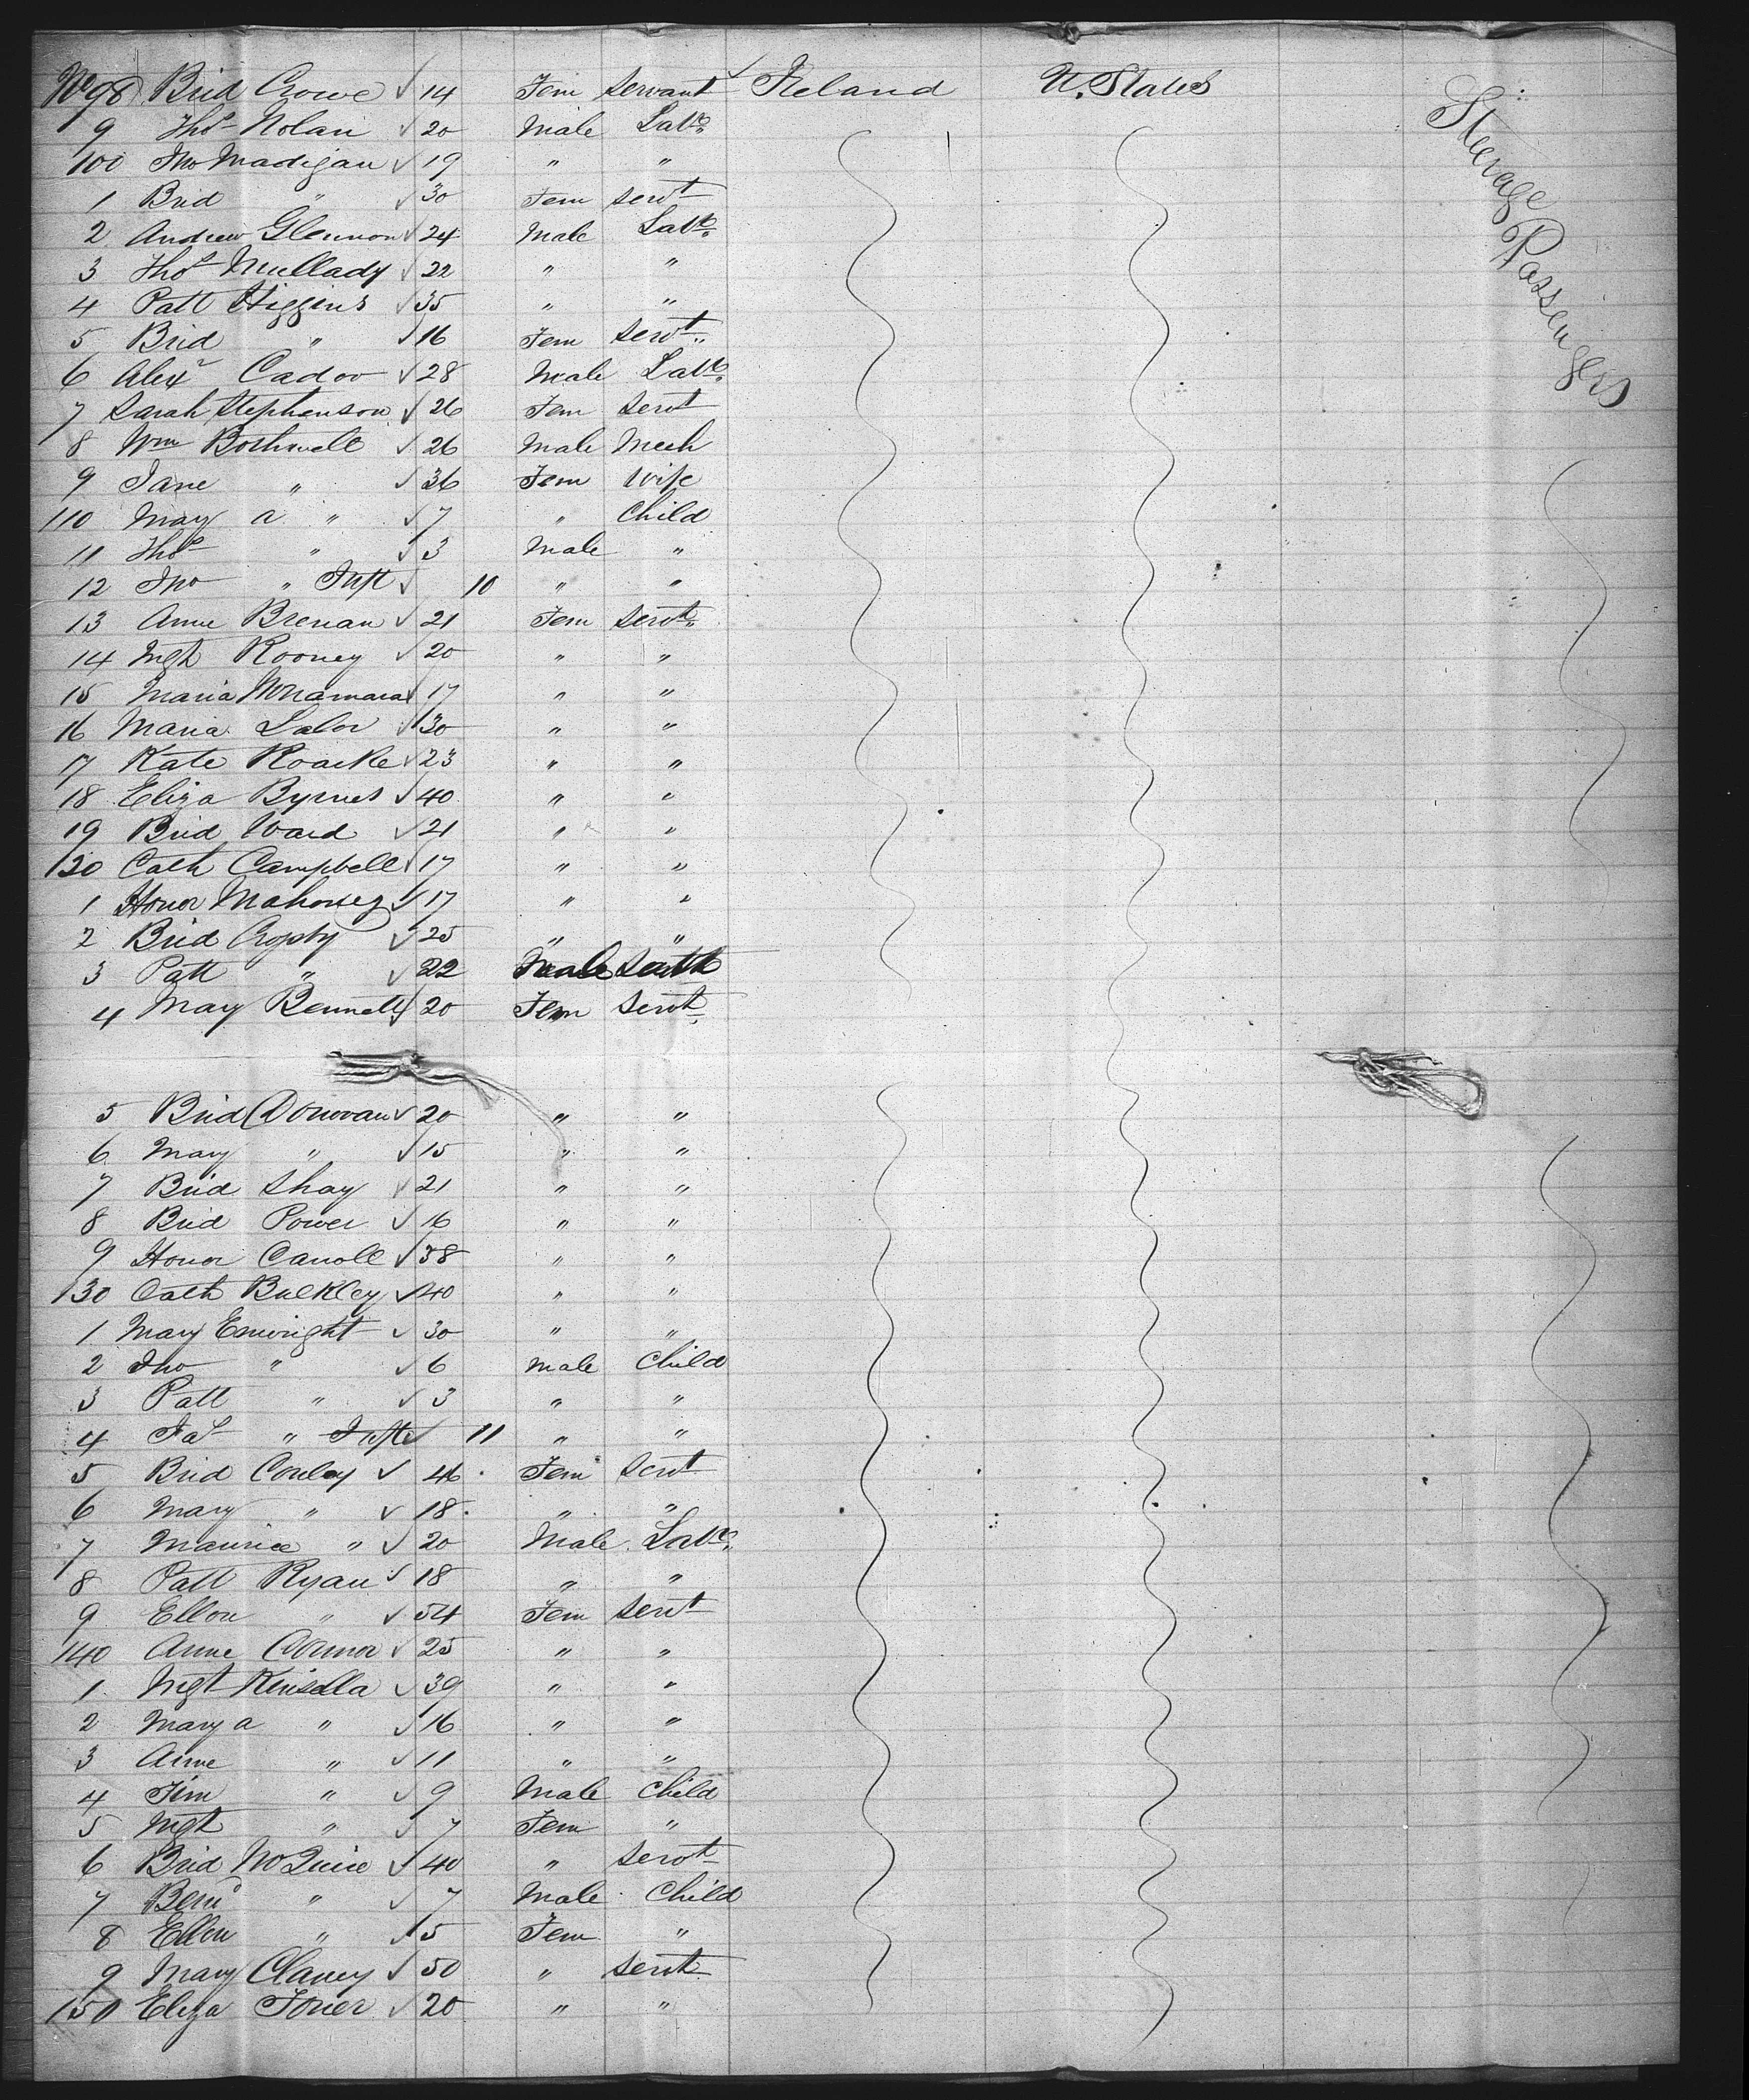 No 98 Brid Crowe ✓ 14 Fem servant ✓ Ireland U. States
9 Thos Nolan ✓ 20 Male Labr
100 Jno Madigan ✓ 19 " "
1 Brid " ✓ 30 Fem servt
2 Andrew Glennon ✓ 24 Male Labr
3 Thos Mullady ✓ 22 " "
4 Patt Higgins ✓ 35 " "
5 Brid " ✓ 16 Fem servt
6 Alexr Cadoo ✓ 28 Male Labr
7 Sarah Stephenson ✓ 26 Fem servt
8 Wm Bothwell ✓ 26 Male Mech
9 Jane " ✓ 36 Fem Wife
110 May A " ✓ 7 " Child
11 Thos " ✓ 3 Male "
12 Jno " Inft ✓ 10 " "
13 Anne Brenan ✓ 21 Fem servt
14 Mgt Rooney ✓ 20 " "
15 Maria McNamara ✓ 17 " "
16 Maria Lalor ✓ 30 " "
17 Kate Roarke ✓ 23 " "
18 Eliza Byrnes ✓ 40 " "
19 Brid Ward ✓ 21 " "
120 Cath Campbell ✓ 17 " "
1 Honor Mahoney ✓ 17 " "
2 Brid Crosby ✓ 25 " "
3 Patt " ✓ 22 Male
4 Mary Bennett ✓ 20 Fem servt
5 Brid Donovan ✓ 20 " "
6 Mary " ✓ 15 " "
7 Brid Shay ✓ 21 " "
8 Brid Power ✓ 16 " "
9 Honor Carroll ✓ 38 " "
130 Cath Bulkley ✓ 40 " "
1 Mary Enwright ✓ 30 " "
2 Jno " ✓ 6 Male Child
3 Patt " ✓ 3 " "
4 Jas " Inft ✓ 11 " "
5 Brid Conley ✓ 46 Fem servt
6 Mary " ✓ 18 " "
7 Maurice " ✓ 20 Male Labr
8 Patt Ryan ✓ 18 " "
9 Ellen " ✓ 54 Fem servt
140 Anne Connor ✓ 25 " "
1 Mgt Kinsella ✓ 39 " "
2 Mary A " ✓ 16 " "
3 Anne " ✓ 11 " "
4 Jim " ✓ 9 Male Child
5 Mgt " ✓ 7 Fem "
6 Brid McQuire ✓ 40 " servt
7 Benj " ✓ 7 Male Child
8 Ellen " ✓ 5 Fem "
9 Mary Clancy ✓ 50 " servt
150 Eliza Toner ✓ 20 " "
Steerage Passengers